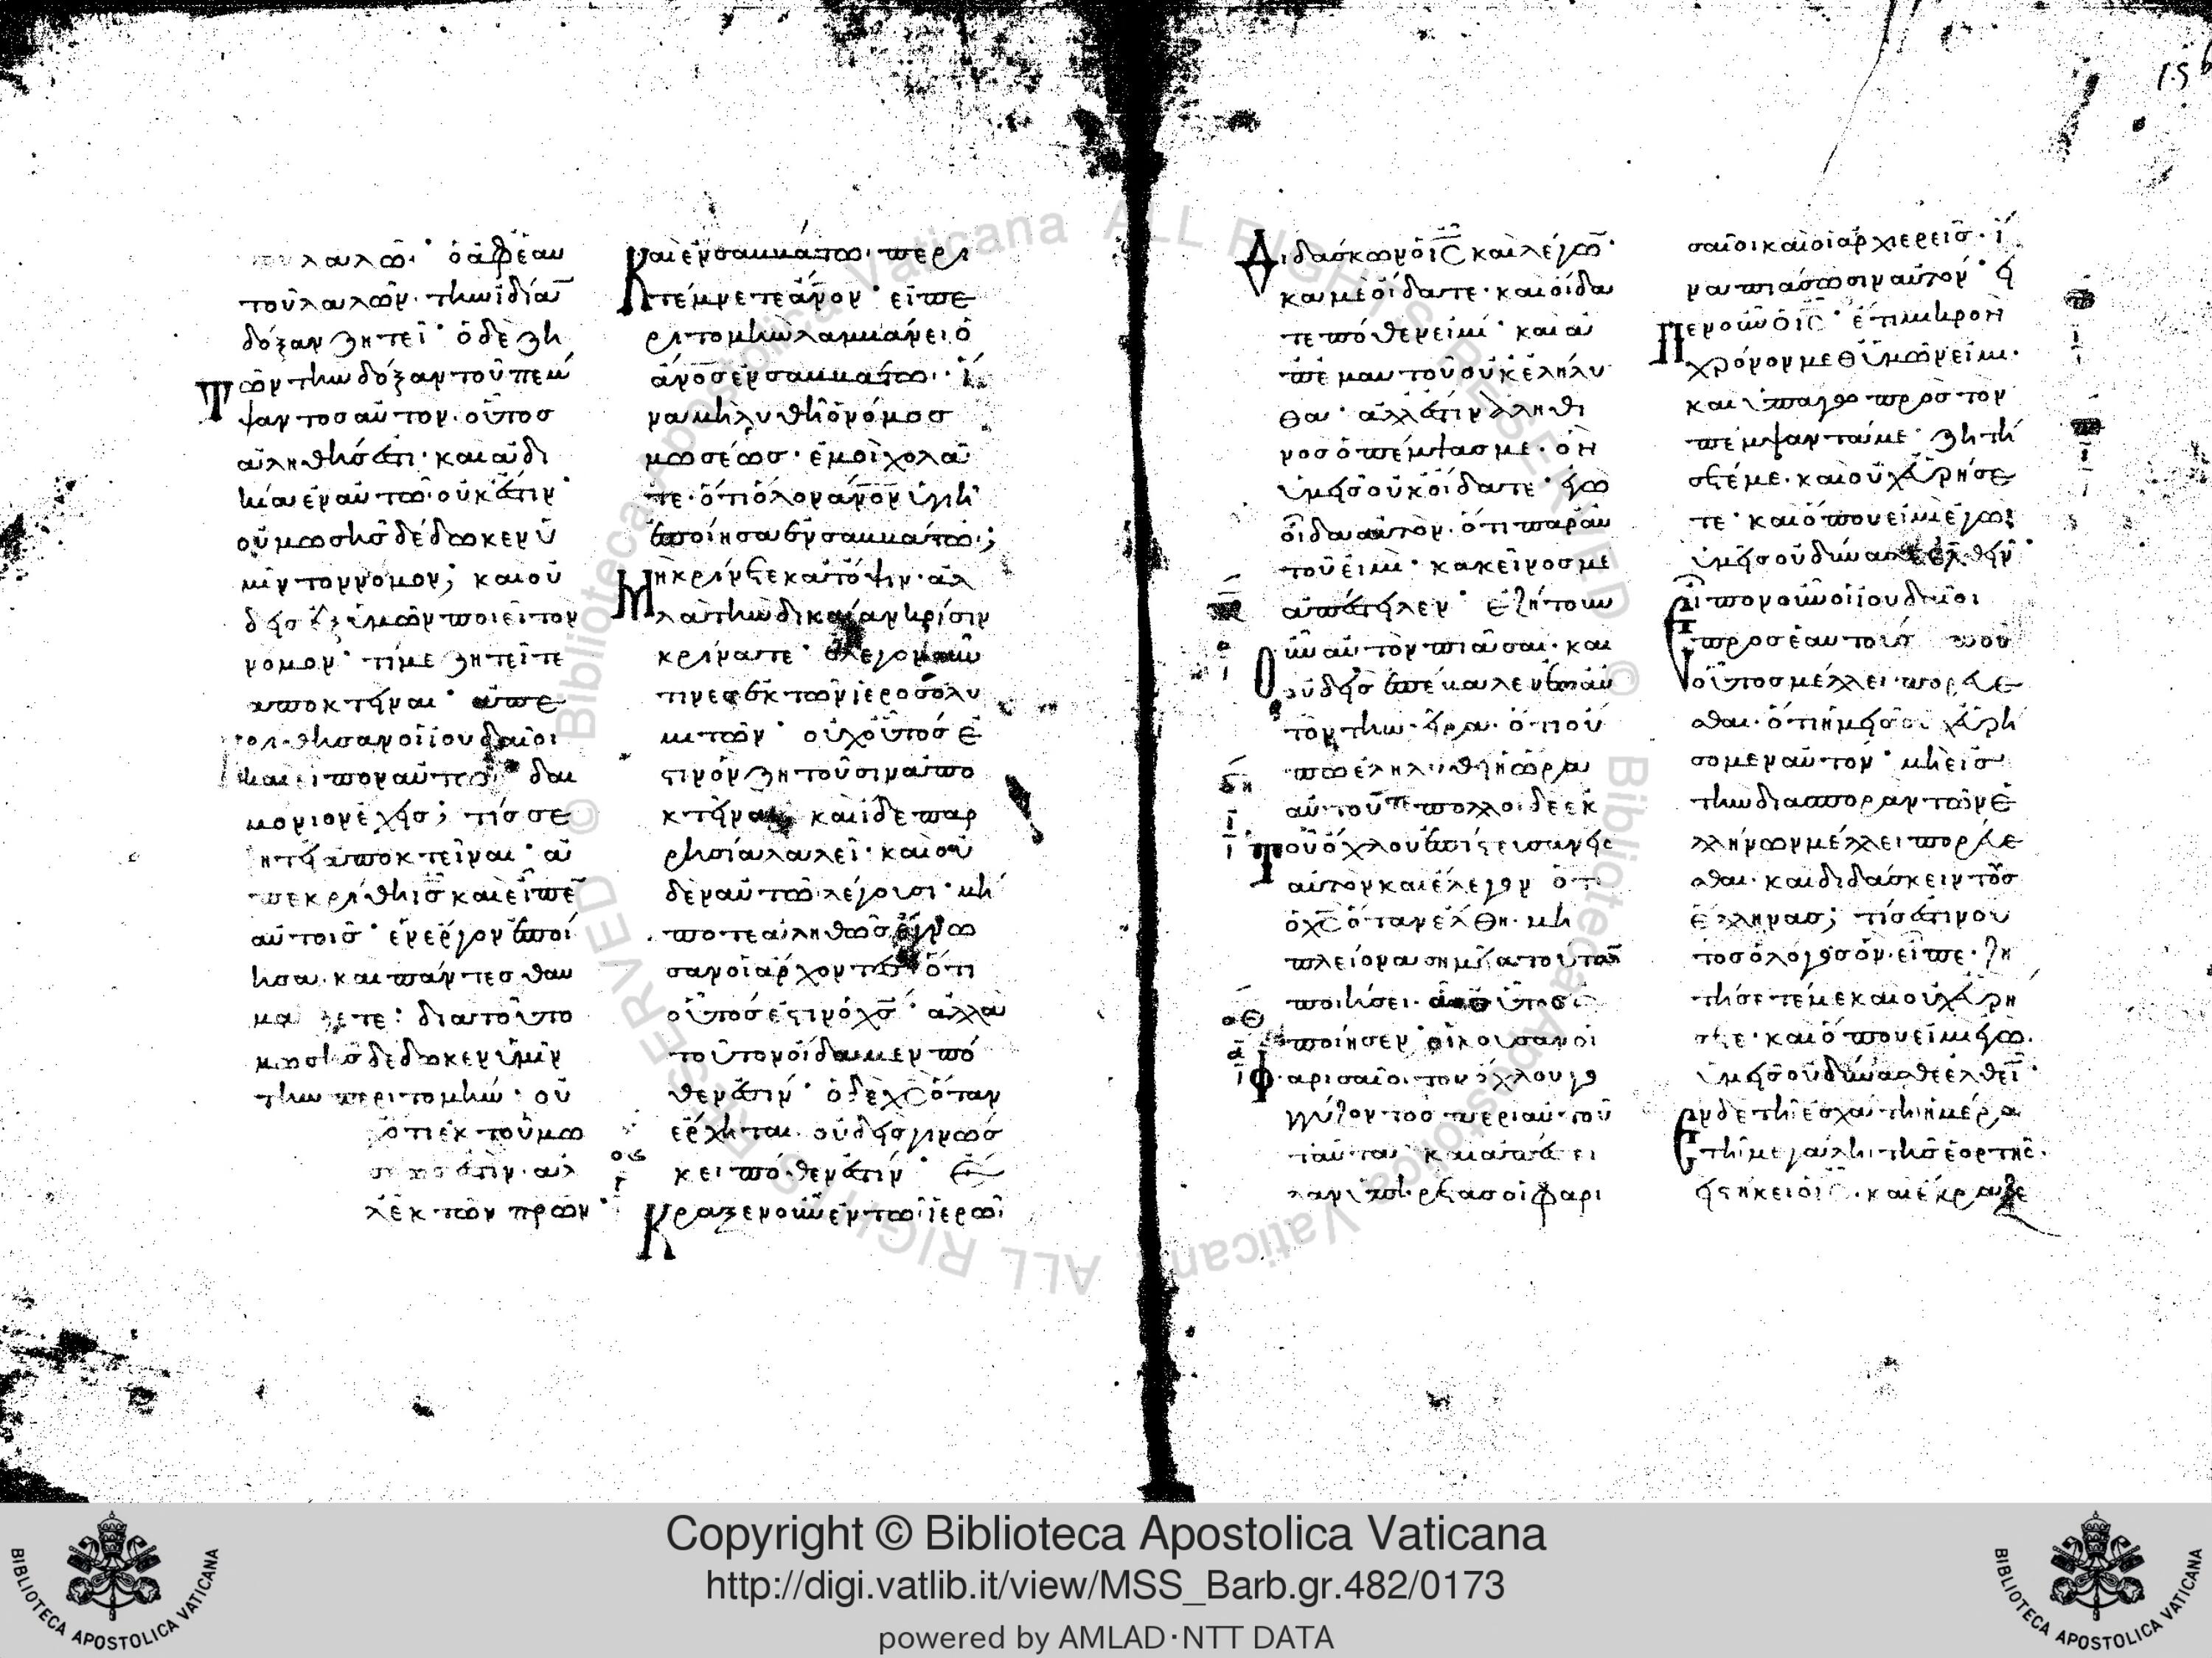 λαλῶ· ὁ ἀφ ἑαυ
τοῦ λαλῶν· τὴν ἰδίαν
δόξαν ζητεῖ· ὁ δὲ ζη
τῶν τὴν δόξαν τοῦ πέμ
ψαντος αὐτον· οὗτος
ἀληθής ἐστι· και ἀδι
κία ἐν αὐτῶ οὐκ ἔστιν·
οὐ μωσῆς δέδωκεν ὑ
μῖν τον νομον; και οὐ
δεὶς ἐξ ὑμῶν ποιεῖ τον
νομον· τί με ζητεῖτε
αποκτεῖναι· ἀπε
κρίθησαν οἱ ἰουδαῖοι
και εἶπον αὐτῶ· δαι
μονιον ἔχεις; τίς σε
ζητεῖ ἀποκτεῖναι· ἀ
πεκρίθη ις και εἶπεν
αὐτοις· ἓν ἔργον ἐποί
ησα· και πάντες θαυ
μαζετε· διατοῦτο
μωσῆς δεδωκεν ὑμῖν
την περιτομήν· οὐχ
ὅτι ἐκ τοῦ μω
σεως ἐστιν· αλ
λ ἐκ τῶν πρων·
Και ἐν σαββάτω· περι
τέμνετε ἄνον· εἰ πε
ριτομὴν λαμβάνει ὁ
άνος ἐν σαββάτω· ἵ
να μὴ λυθῆ ὁ νόμος
μωσέως· ἐμοὶ χολᾶ
τε· ὅτι ὅλον ανον ὑγιῆ
ἐποίησα ἐν σαββάτω;
Μὴ κρίνετε κατ ὄψιν· αλ
λὰ τὴν δικαίαν κρίσιν
κρίνατε· ἔλεγον οὖν
τινες ἐκ τῶν ἱεροσολυ
μιτῶν· οὐχ οὗτός ἐ
στιν ὃν ζητοῦσιν ἀπο
κτεῖναι· και ἴδε παρ
ρησία λαλεῖ· και οὐ
δεν αὐτῶ λέγουσι· μή
ποτε ἀληθῶς ἔγνω
σαν οἱ ἄρχοντες ὅτι
οὗτός ἐστιν ὁ χς· αλλα
τοῦτον οἴδαμεν πό
θεν ἐστίν· ὁ δὲ χς ὅταν
ἔρχηται· οὐδεὶς γινώσ
κει πόθεν ἐστίν· Ε
Κραξεν οὖν ἐν τῶ ἱερῶ
Διδάσκων ὁ ις και λέγων·
καμὲ οἴδατε· και οἴδα
τε πόθεν εἰμί· και ἀ
π ἐμαυτοῦ οὐκ ἐλήλυ
θα· αλλ ἔστιν ἀληθι
νος ὁ πέμψας με· ὃν
ὑμεῖς οὐκ οἴδατε· ἐγω
οἶδα αὐτον· ὅτι παρ αυ
τοῦ εἰμι· κακεῖνος με
ἀπέστειλεν· Εζήτουν
οὖν αὐτὸν πιᾶσαι· και
οὐδεὶς ἐπέβαλεν ἐπ αυ
τὸν την χεῖρα· ὅτι οὔ
πω ἐληλύθει ἡ ὥρα
αὐτοῦ πολλοι δε ἐκ
Τοῦ ὄχλου ἐπίστευσαν εἰς
αὐτον και ἔλεγον ὅτι
ὁ χς ὅταν ἔλθη· μὴ
πλείονα σημεῖα τούτων
ποιήσει· ὧν οὗτος ἐ
ποίησεν· ἤκουσαν οἱ
Φαρισαῖοι του ὄχλου γο
γγύζοντος περι αὐτοῦ
ταῦτα· και απέστει
λαν ὑπηρέτας οἱ φαρι
σαῖοι και οἱ ἀρχιερεῖς· ἵ
να πιάσωσιν αὐτόν· εἶ
Πεν οὖν ὁ ις· ἔτι μικρον
χρόνον μεθ ὑμῶν εἰμι·
και ὑπαγω προς τον
πέμψαντά με· ζητή
σετέ με· και οὐχ εὑρήσε
τε· και ὅπου εἰμὶ ἐγω·
ὑμεῖς οὐ δύνασθε ἐλθεῖν·
Εἶπον οὖν οἱ ἰουδαῖοι
προς ἑαυτους ποῦ
οὗτος μέλλει πορεύε
σθαι· ὅτι ἡμεῖς οὐχ εὑρή
σομεν αὐτόν· μὴ εἰς
την διασπορὰν τῶν ἑ
λλήνων μέλλει πορεύε
σθαι· και διδάσκειν τοὺς
ἕλληνας; τίς ἐστιν οὗ
τος ὁ λόγος ὃν εἶπε· ζη
τήσετέ με και οὐχ εὑρή
σετε· και ὅπου εἰμὶ ἐγω·
ὑμεῖς οὐ δύνασθε ἐλθεῖν·
Εν δε τῆ ἐσχάτη ἡμέρα
τῆ μεγάλη τῆς ἑορτῆς·
εἱστήκει ὁ ις· και ἔκραξε
Copyright © Biblioteca Apostolica Vaticana
http://digi.vatlib.it/view/MSS_Barb.gr.482/0173
powered by AMLAD·NTT DATA
BIBLIOTECA APOSTOLICA VATICANA
BIBLIOTECA APOSTOLICA VATICANA